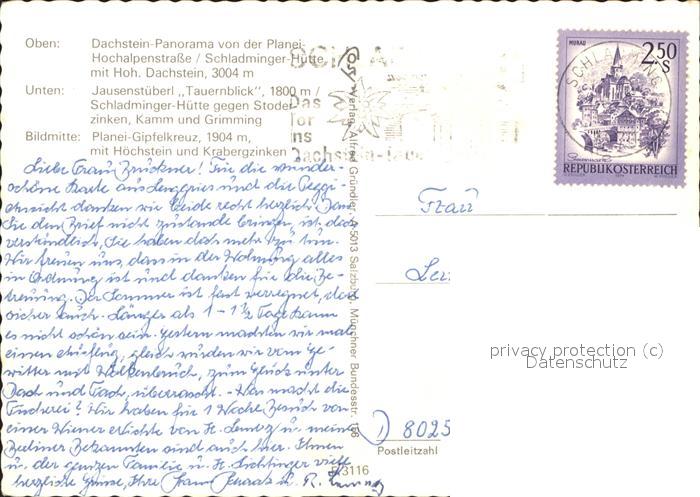 Oben: Dachstein-Panorama von der Planei-
Hochalpenstraße / Schladminger-Hütte
mit Hoh. Dachstein, 3004 m
Unten: Jausenstüberl „Tauernblick", 1800 m /
Schladminger-Hütte gegen Stoder-
zinken, Kamm und Grimming
Bildmitte: Planei-Gipfelkreuz, 1904 m,
mit Höchstein und Krabergzinken
Liebe Frau Brückner! Für die wunder-
schöne Karte aus Lenggries und die
danken wir beide recht herzlich. Dass
Sie den Brief nicht zustande bringen, ist doch
verständlich, Sie haben doch mehr zu tun.
Wir freuen uns, dass in der Wohnung alles
in Ordnung ist und danken für die Be-
treuung. Der Sommer ist fast verregnet, dort
sicher auch. Länger als 1 - 1½ Tage kann
es nicht schön sein. Gestern machten wir mal
einen Ausflug, gleich wurden wir vom Ge-
witter mit Wolkenbruch, zum Glück unter
Dach und Fach, überrascht. - Was macht die
? Wir haben für 1 Woche Besuch von
einer Wiener Nichte von H. u. meine
Berliner Bekannten sind auch hier. Ihnen
u. der ganzen Familie u. H. viele
herzliche Grüße, Ihre
Cosy Verlag Alfred Gründler, A-5013 Salzburg, Münchner Bundesstr. 156
B/3116
SCHLADMING
Das
Tor
ins
Dachstein-Tau
MURAU
2.50
S
REPUBLIK ÖSTERREICH
SCHLADMING
Frau
privacy protection (c)
Datenschutz
D 8025
Postleitzahl